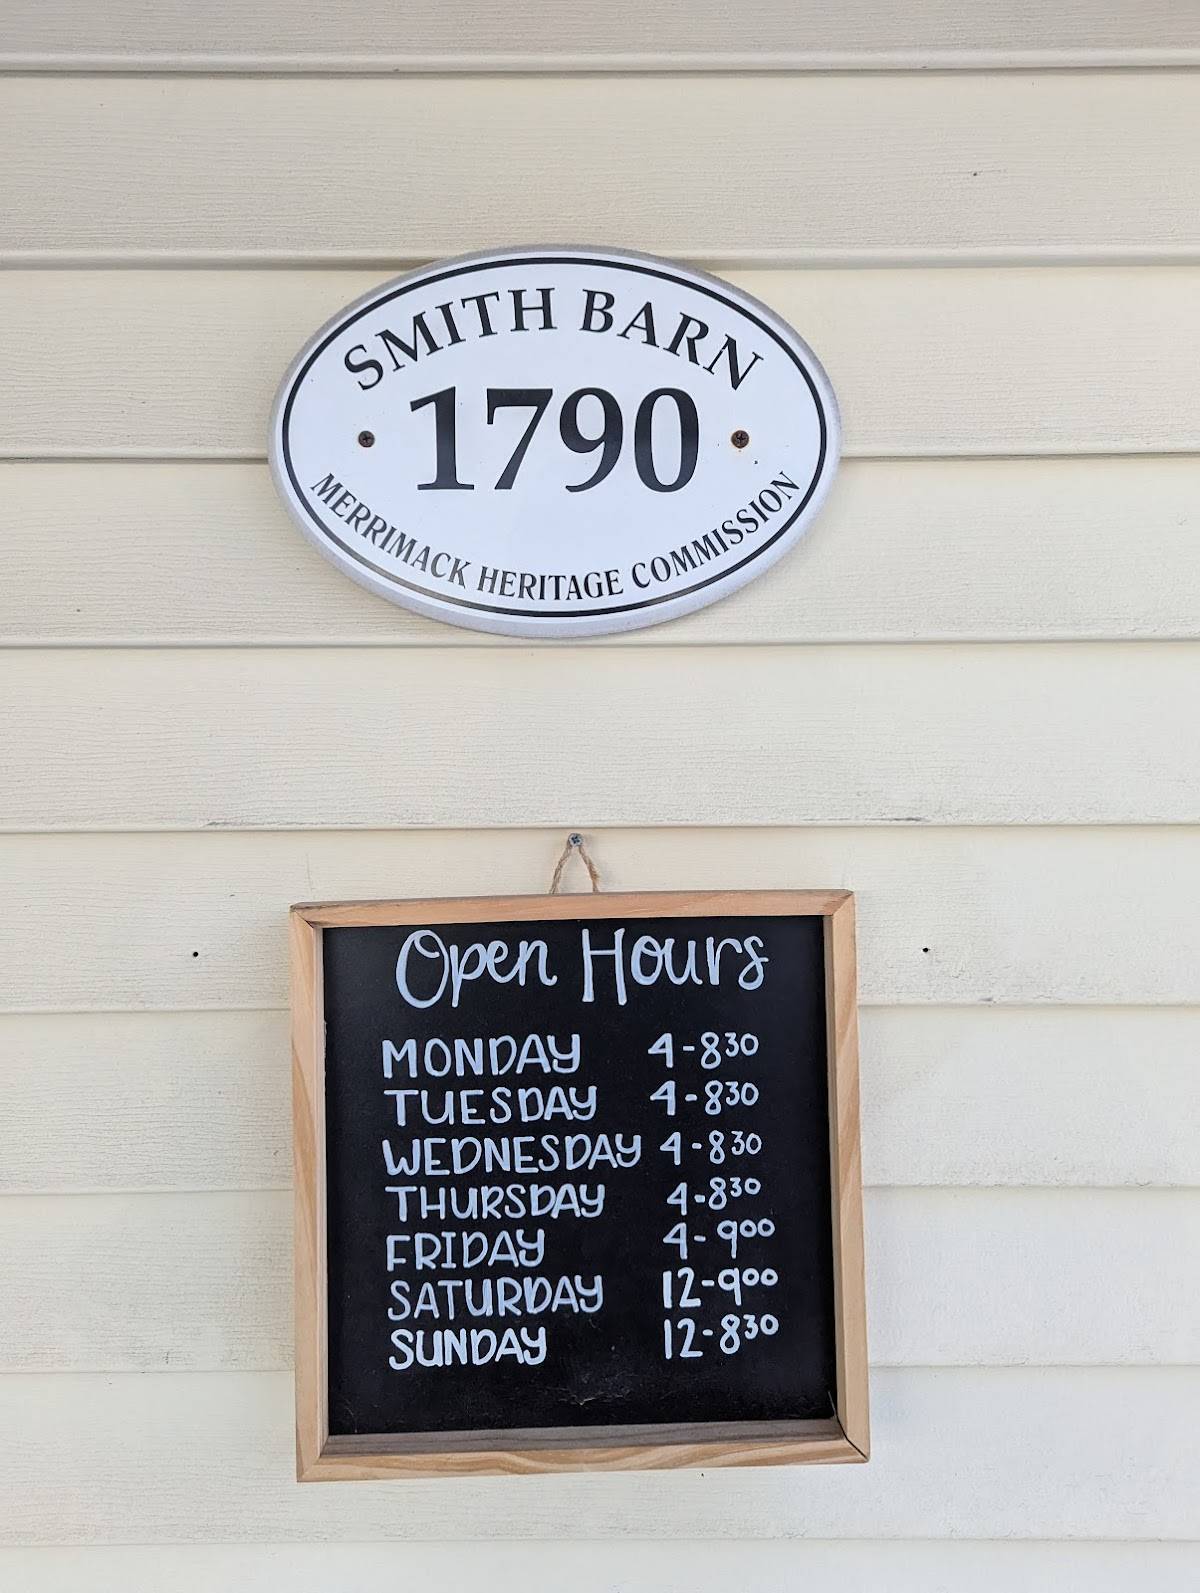 SMITH BARN
1790
MERRIMACK HERITAGE COMMISSION
Open Hours
MONDAY 4-8³⁰
TUESDAY 4-8³⁰
WEDNESDAY 4-8³⁰
THURSDAY 4-8³⁰
FRIDAY 4-9⁰⁰
SATURDAY 12-9⁰⁰
SUNDAY 12-8³⁰